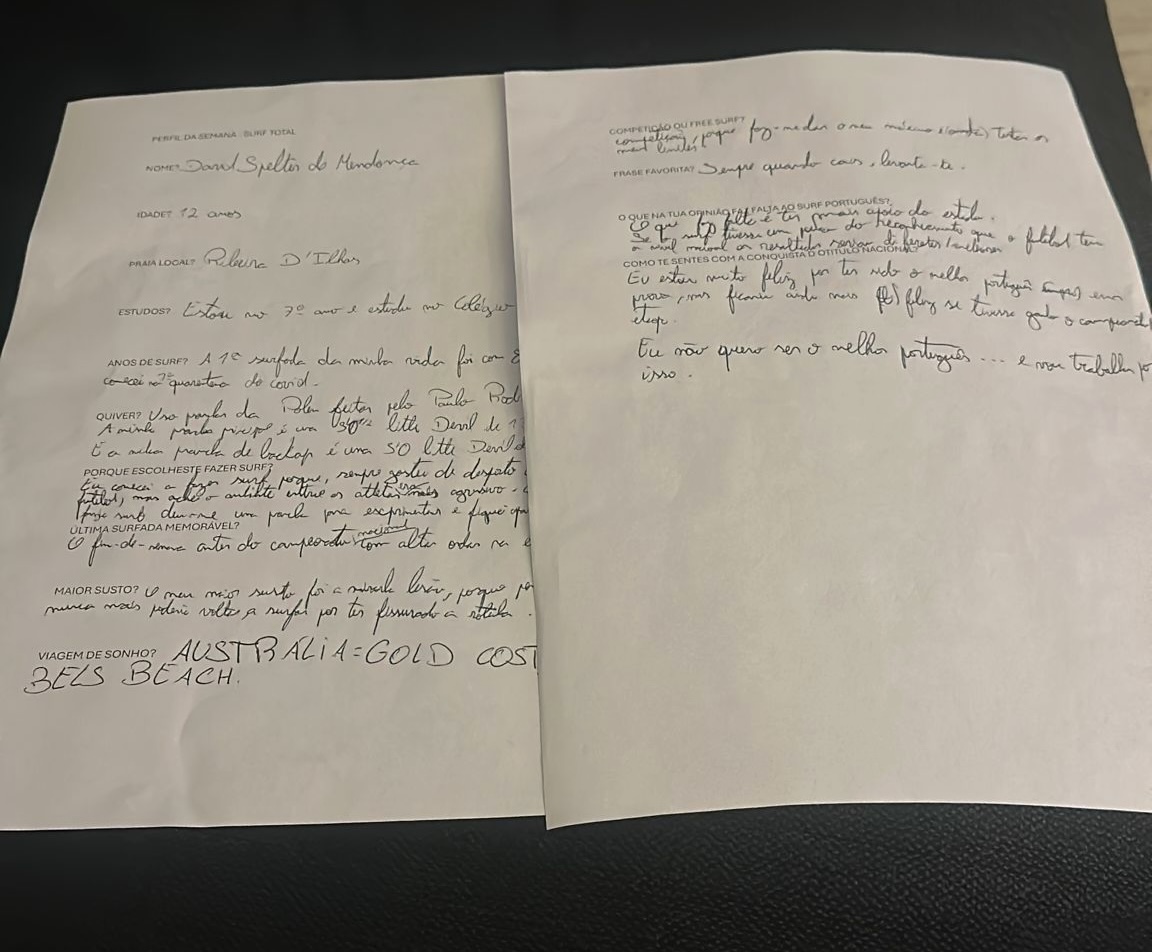 PERFIL DA SEMANA SURF TOTAL
NOME? David Spelter de Mendonça
IDADE? 12 anos
PRAIA LOCAL? Ribeira D'Ilhas
ESTUDOS? Estou no 7º ano e estudo no
ANOS DE SURF? A 1ª surfada da minha vida foi com 8
comecei na quarentena do covid.
QUIVER? Uso pranchas da Polen feitas pelo Paulo Rod
A minha prancha principal é uma little Devil de
E a minha prancha de backup é uma 5'0 little Devil
PORQUE ESCOLHESTE FAZER SURF?
Eu comecei a fazer surf porque, sempre gostei de desporto
futebol, mas acho o ambiente entre os atletas mais agressivo.
surf deu-me uma prancha para e fiquei
ÚLTIMA SURFADA MEMORÁVEL?
O fim-de-semana antes do campeonato nacional com altas ondas na
MAIOR SUSTO? O meu maior susto foi a minha lesão, porque
nunca mais poderia voltar a surfar por ter fissurado a rótula.
VIAGEM DE SONHO? AUSTRÁLIA=GOLD COST
BELS BEACH.
COMPETIÇÃO OU FREE SURF?
competição, porque faz-me dar o meu máximo testar os
meus limites
FRASE FAVORITA? Sempre quando cais, levanta-te.
O QUE NA TUA OPINIÃO FAZ FALTA AO SURF PORTUGUÊS?
O que falta é ter mais apoio do estado.
Se o surf tivesse um pouco do reconhecimento que o futebol tem
a nível nacional os resultados seriam diferentes/melhores
COMO TE SENTES COM A CONQUISTA O TITULO NACIONAL?
Eu estou muito feliz por ter sido o melhor português
prova, mas ficaria ainda mais feliz se tivesse ganho o
etapa.
Eu não quero ser o melhor português... e vou trabalhar
isso.